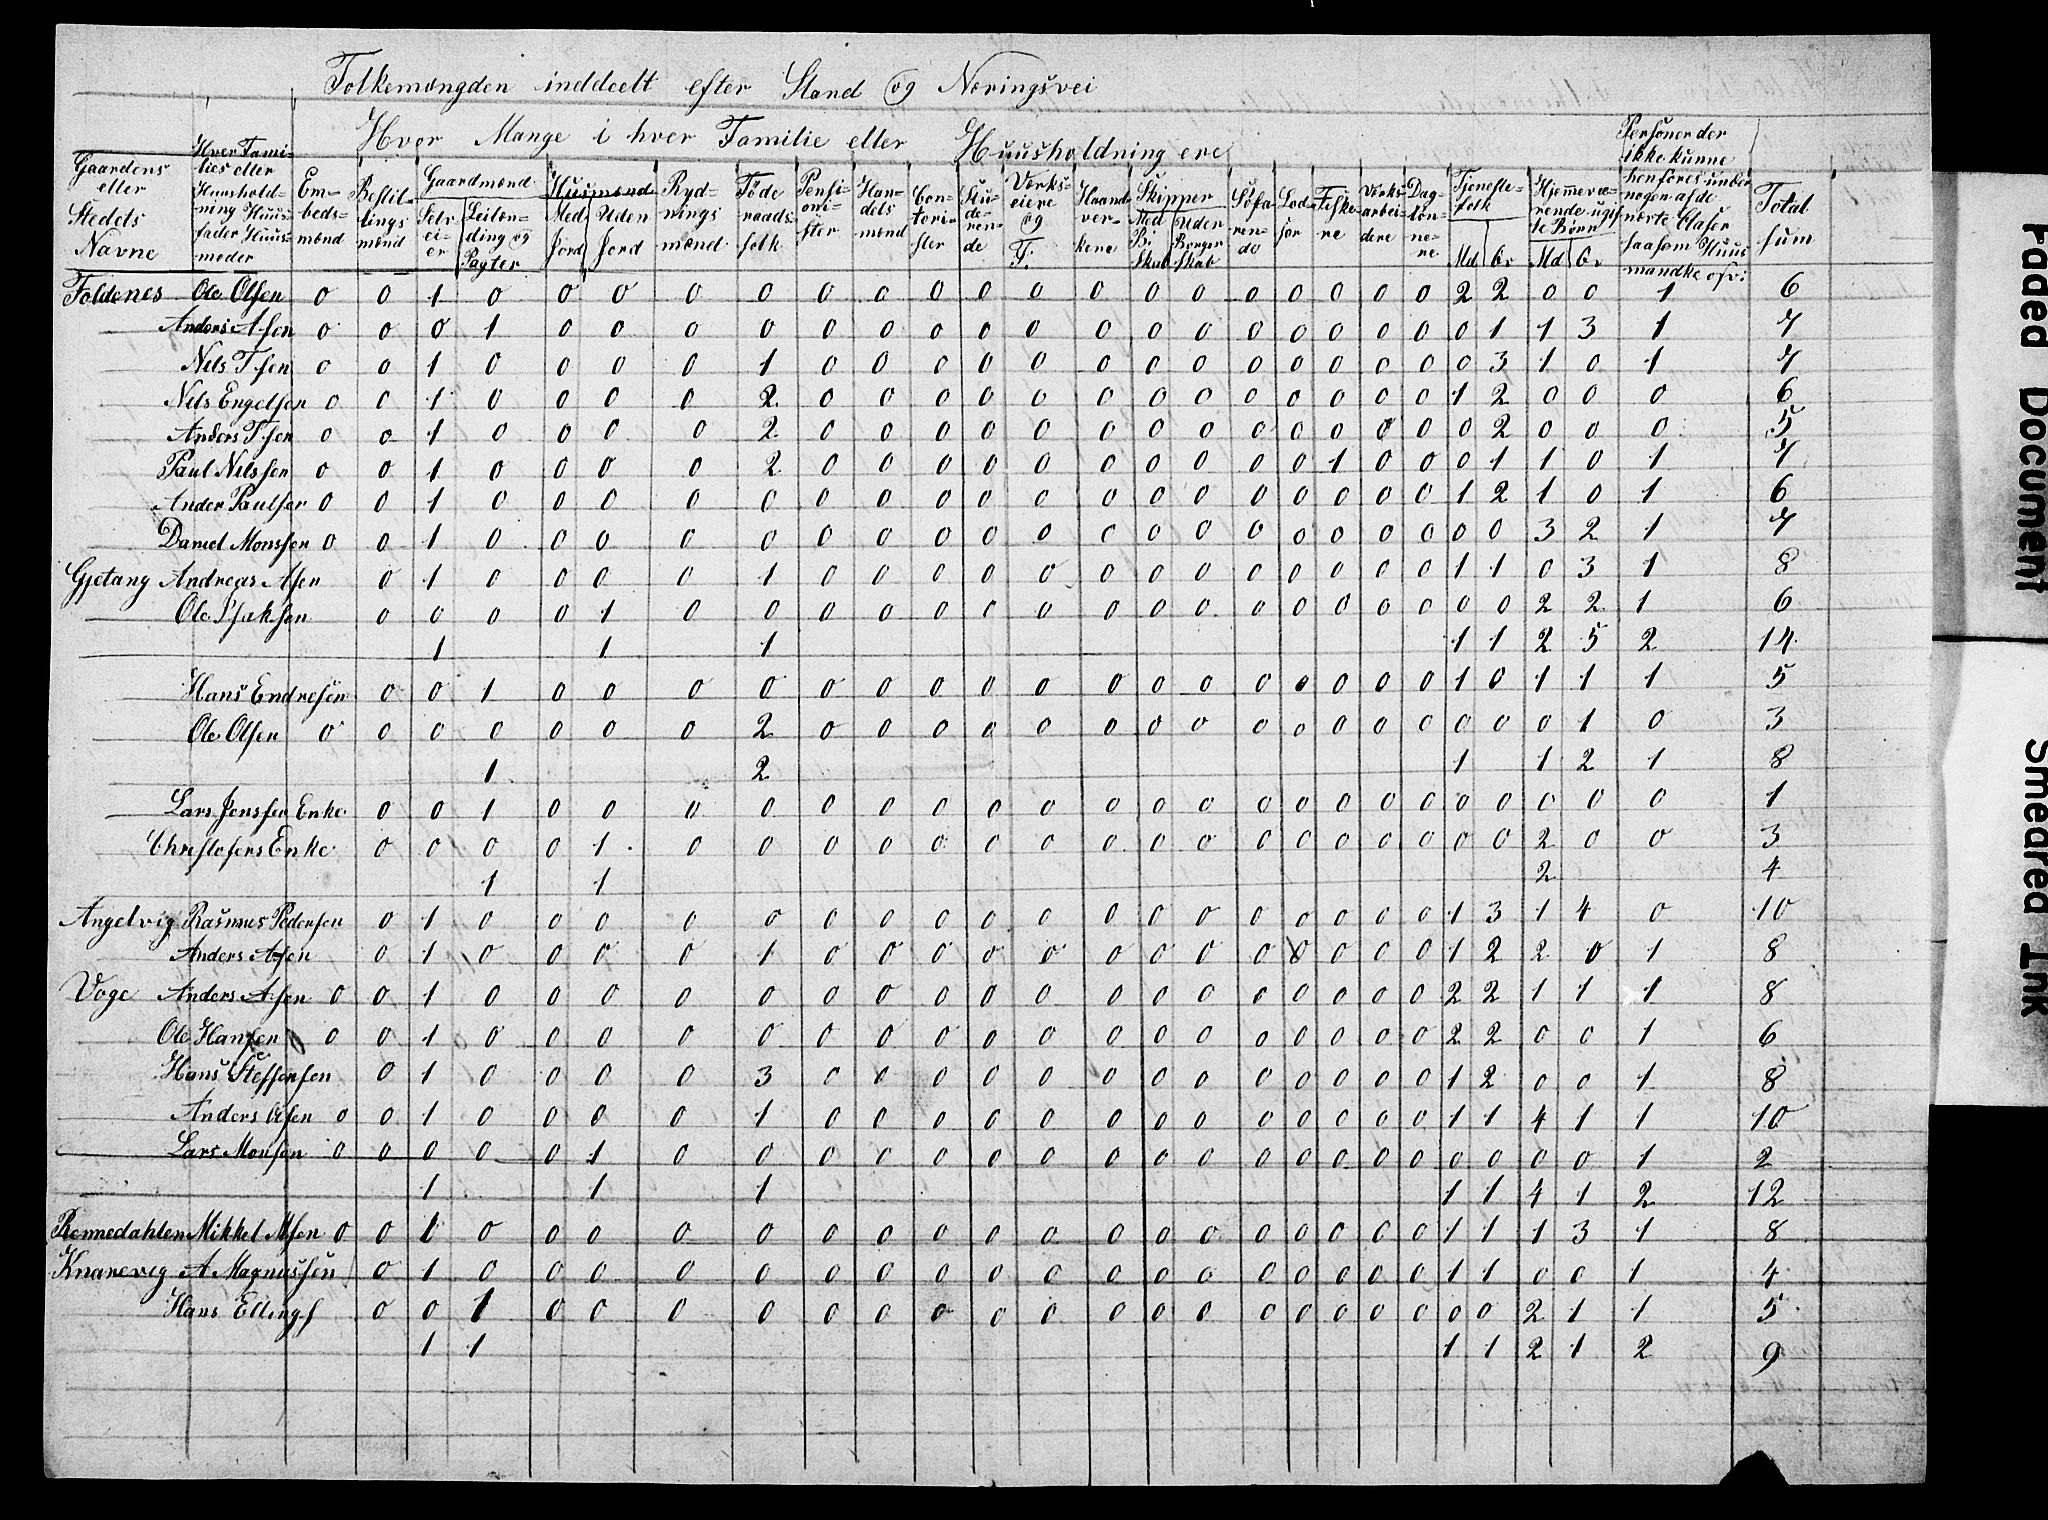 Folkemængden inddeelt efter Stand og Næringsvei
Hvor Mange i hver Familie eller Huusholdning ere
Gaardens eller Stedets Navne | Hver Families eller Huusholdning Huusfader Huusmoder | Embedsmænd | Bestillingsmænd | Gaardmænd Selveier | Leilænding og Pagter | Husmænd Med Jord | Uden Jord | Rydningsmænd | Føderaadsfolk | Pensionister | Handelsmænd | Contorister | Studerende | Værkseiere og F. | Haandverkene | Skipper Med B. Skab | Uden Borgerskab | Søfarende | Lodser | Fiskere | Værksarbeidere | Daglønnere | Tjenestefolk Md | Qv | Hjemmeværende ugifte Børn Md | Qv | Personer der ikke kunne henføres under nogen af de nævnte Classer saasom Huusmandke osv: | Total sum
Foldenes Ole Olsen 0 0 1 0 0 0 0 0 0 0 0 0 0 0 0 0 0 0 0 0 0 2 2 0 0 1 6
Anders Asen 0 0 0 1 0 0 0 0 0 0 0 0 0 0 0 0 0 0 0 0 0 0 1 1 3 1 7
Nils Tsen 0 0 1 0 0 0 0 1 0 0 0 0 0 0 0 0 0 0 0 0 0 0 3 1 0 1 7
Nils Engelsen 0 0 1 0 0 0 0 2 0 0 0 0 0 0 0 0 0 0 0 0 0 1 2 0 0 0 6
Anders Tsen 0 0 1 0 0 0 0 2 0 0 0 0 0 0 0 0 0 0 0 0 0 0 2 0 0 0 5
Paul Nilssen 0 0 1 0 0 0 0 2 0 0 0 0 0 0 0 0 0 0 1 0 0 0 1 1 0 1 7
Ander Paulsen 0 0 1 0 0 0 0 0 0 0 0 0 0 0 0 0 0 0 0 0 0 1 2 1 0 1 6
Daniel Monssen 0 0 1 0 0 0 0 0 0 0 0 0 0 0 0 0 0 0 0 0 0 0 0 3 2 1 7
Gjetang Andreas Asen 0 1 0 0 0 0 1 0 0 0 0 0 0 0 0 0 0 0 0 0 1 1 0 3 1 8
Ole Isaksen 0 0 0 0 1 0 0 0 0 0 0 0 0 0 0 0 0 0 0 0 0 0 2 2 1 6
1 1 1 1 1 2 5 2 14
Hans Endresen 0 0 1 0 0 0 0 0 0 0 0 0 0 0 0 0 0 0 0 0 1 0 1 1 1 5
Ole Olsen 0 0 0 0 0 0 0 2 0 0 0 0 0 0 0 0 0 0 0 0 0 0 0 0 1 0 3
1 2 1 1 2 1 8
Lars Jensser Enke 0 0 1 0 0 0 0 0 0 0 0 0 0 0 0 0 0 0 0 0 0 0 0 0 0 1
Christofers Enke 0 0 0 0 1 0 0 0 0 0 0 0 0 0 0 0 0 0 0 0 0 0 2 0 0 3
1 1 2 4
Angelvig Rasmus Pedersen 0 1 0 0 0 0 0 0 0 0 0 0 0 0 0 0 0 0 0 0 1 3 1 4 0 10
Anders Asen 0 1 0 0 0 0 1 0 0 0 0 0 0 0 0 0 0 0 0 0 1 2 2 0 1 8
Vage Anders Asen 0 0 1 0 0 0 0 0 0 0 0 0 0 0 0 0 0 0 0 0 0 2 2 1 1 1 8
Ole Hansen 0 0 1 0 0 0 0 0 0 0 0 0 0 0 0 0 0 0 0 0 0 2 2 0 0 1 6
Hans Steffensen 0 1 0 0 0 0 3 0 0 0 0 0 0 0 0 0 0 0 0 0 1 2 0 0 1 8
Anders Olsen 0 0 1 0 0 0 0 1 0 0 0 0 0 0 0 0 0 0 0 0 0 1 1 4 1 1 10
Lars Monsen 0 0 0 0 0 1 0 0 0 0 0 0 0 0 0 0 0 0 0 0 0 0 0 0 0 1 2
1 1 1 1 1 4 1 2 12
Rennedahlen Mikkel Msen 0 0 1 0 0 0 0 0 0 0 0 0 0 0 0 0 0 0 0 0 0 1 1 1 3 1 8
Knarevig A Magnussen 0 1 0 0 0 0 0 0 0 0 0 0 0 0 0 0 0 0 0 0 1 1 0 0 1 4
Hans Ellings 0 0 1 0 0 0 0 0 0 0 0 0 0 0 0 0 0 0 0 0 0 0 2 1 1 5
1 1 1 1 2 1 2 9
Faded Document
Smeared Ink